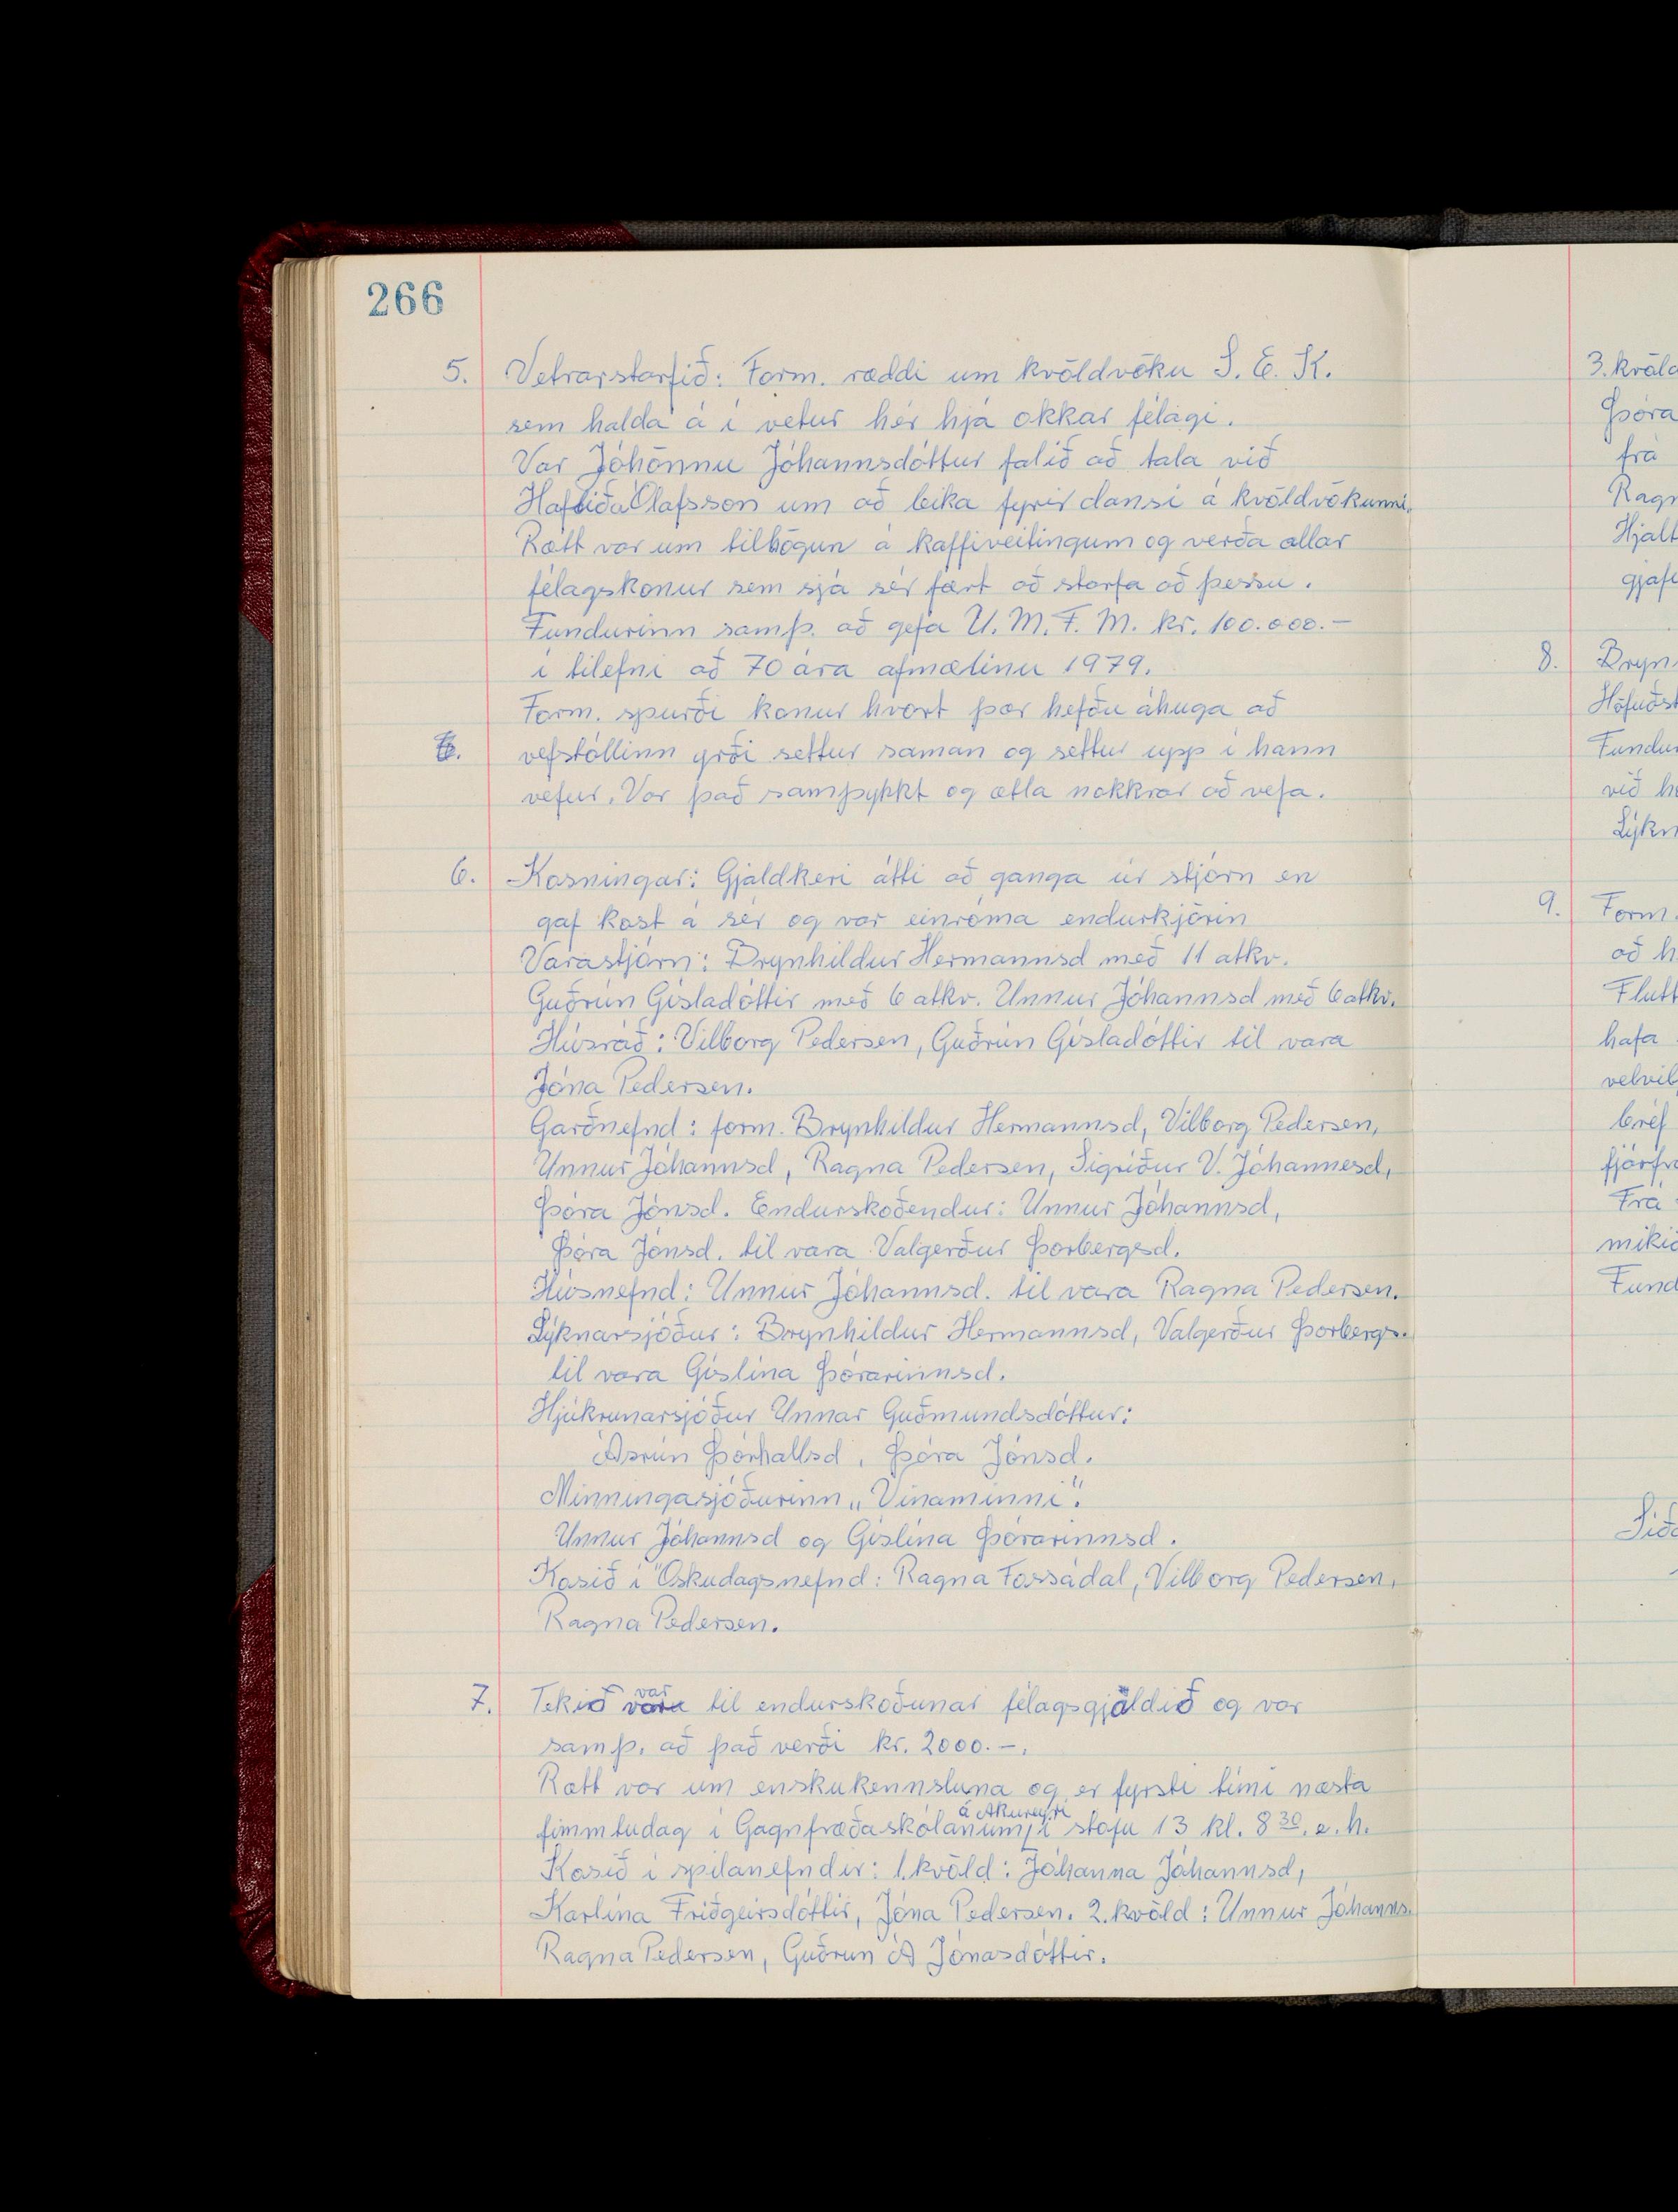 266
5. Vetrarstarfið: Form. ræddi um kvöldvöku S. E. K.
sem halda á í vetur hér hjá okkar félagi.
Var Jóhönnu Jóhannsdóttur falið að tala við
Hafliða Ólafsson um að leika fyrir dansi á kvöldvökunni.
Rætt var um tilhögun á kaffiveitingum og verða allar
félagskonur sem sjá sér fært að starfa að þessu.
Fundurinn samþ. að gefa U. M. F. M. kr. 100.000.-
í tilefni að 70 ára afmælinu 1979.
Form. spurði konur hvort þær hefðu áhuga að
6. vefstóllinn yrði settur saman og settur upp í hann
vefur. Var það samþykkt og ætla nokkrar að vefa.
6. Kosningar: Gjaldkeri átti að ganga úr stjórn en
gaf kost á sér og var einróma endurkjörin
Varastjórn: Brynhildur Hermannsd með 11 atkv.
Guðrún Gísladóttir með 6 atkv. Unnur Jóhannsd með 6 atkv.
Húsráð: Vilborg Pedersen, Guðrún Gísladóttir til vara
Jóna Pedersen.
Garðnefnd: form. Brynhildur Hermannsd, Vilborg Pedersen,
Unnur Jóhannsd, Ragna Pedersen, Sigríður V. Jóhannesd,
Þóra Jónsd. Endurskoðendur: Unnur Jóhannsd,
Þóra Jónsd. til vara Valgerður Þorbergsd.
Húsnefnd: Unnur Jóhannsd. til vara Ragna Pedersen.
Líknarsjóður: Brynhildur Hermannsd, Valgerður Þorbergs.
til vara Gíslína Þórarinnsd.
Hjúkrunarsjóður Unnar Guðmundsdóttur:
Ásrún Þórhallsd, Þóra Jónsd.
Minningasjóðurinn „Vinaminni".
Unnur Jóhannsd og Gíslína Þórarinnsd.
Kosið í Öskudagsnefnd: Ragna Fossádal, Vilborg Pedersen,
Ragna Pedersen.
7. Tekið var til endurskoðunar félagsgjaldið og var
samþ. að það verði kr. 2000.-.
Rætt var um enskukennsluna og er fyrsti tími næsta
fimmtudag í Gagnfræðaskólanum á Akureyri í stofu 13 kl. 8 30. e.h.
Kosið í spilanefndir: 1. kvöld: Jóhanna Jóhannsd,
Karlína Friðgeirsdóttir, Jóna Pedersen. 2. kvöld: Unnur Jóhanns.
Ragna Pedersen, Guðrun A Jónasdóttir.
3. kvöld
Þóra
frá
Ragn
Hjalt
gjaf
8. Bryn
Höfuðst
Fundu
við h
Líkn
9. Form.
að h
Flutt
hafa
velvil
bréf
fjárfr
Frá
mikið
Fund